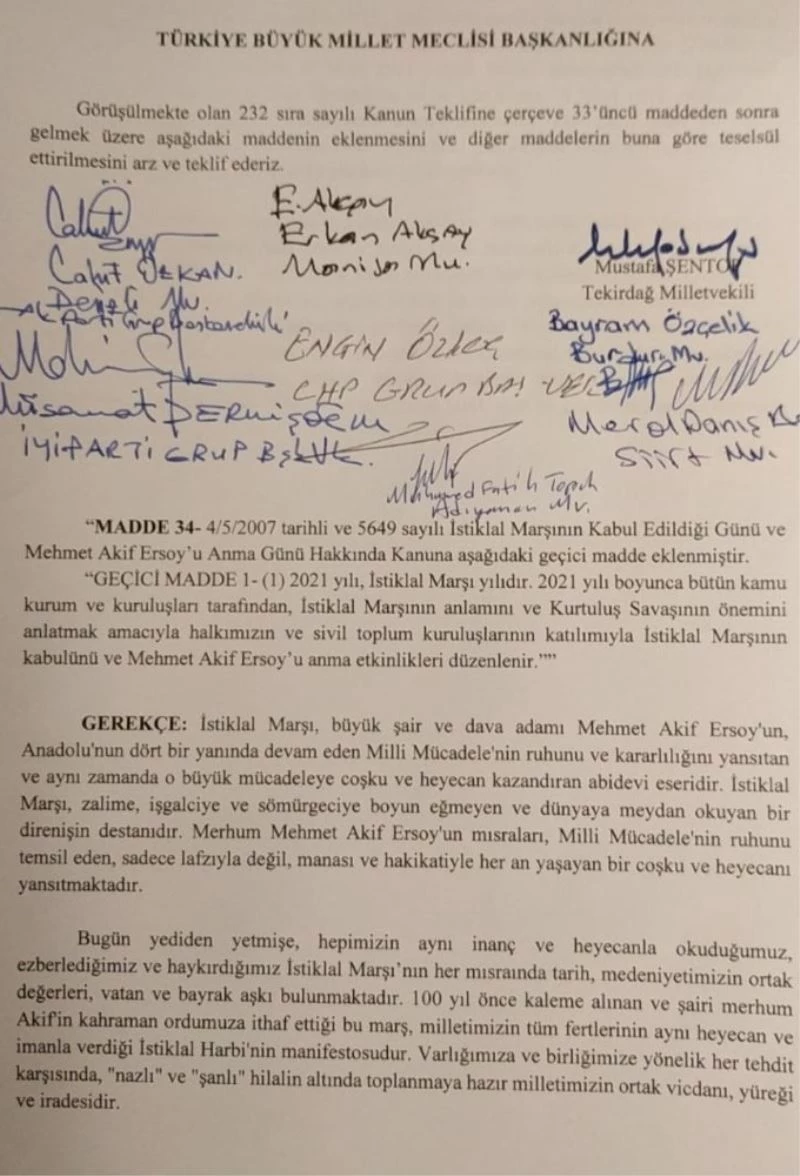 TÜRKİYE BÜYÜK MİLLET MECLİSİ BAŞKANLIĞINA
Görüşülmekte olan 232 sıra sayılı Kanun Teklifine çerçeve 33'üncü maddeden sonra
gelmek üzere aşağıdaki maddenin eklenmesini ve diğer maddelerin buna göre teselsül
ettirilmesini arz ve teklif ederiz.
E. Akçay
Erkan Akçay
Manisa Mv.
Cahit ÖZKAN.
Denizli Mv.
Ak Parti Grup Başkanvekili
Mustafa ŞENTOP
Tekirdağ Milletvekili
Bayram Özçelik
Burdur Mv.
ENGİN ÖZKOÇ
CHP GRUP BAŞ VEK
DERVİŞOĞLU
İYİ PARTİ GRUP Bşk
Meral Danış
Siirt Mv.
Muhammed Fatih Toprak
Adıyaman Mv.
“MADDE 34- 4/5/2007 tarihli ve 5649 sayılı İstiklal Marşının Kabul Edildiği Günü ve
Mehmet Akif Ersoy'u Anma Günü Hakkında Kanuna aşağıdaki geçici madde eklenmiştir.
“GEÇİCİ MADDE 1- (1) 2021 yılı, İstiklal Marşı yılıdır. 2021 yılı boyunca bütün kamu
kurum ve kuruluşları tarafından, İstiklal Marşının anlamını ve Kurtuluş Savaşının önemini
anlatmak amacıyla halkımızın ve sivil toplum kuruluşlarının katılımıyla İstiklal Marşının
kabulünü ve Mehmet Akif Ersoy'u anma etkinlikleri düzenlenir.””
GEREKÇE: İstiklal Marşı, büyük şair ve dava adamı Mehmet Akif Ersoy'un,
Anadolu'nun dört bir yanında devam eden Milli Mücadele'nin ruhunu ve kararlılığını yansıtan
ve aynı zamanda o büyük mücadeleye coşku ve heyecan kazandıran abidevi eseridir. İstiklal
Marşı, zalime, işgalciye ve sömürgeciye boyun eğmeyen ve dünyaya meydan okuyan bir
direnişin destanıdır. Merhum Mehmet Akif Ersoy'un mısraları, Milli Mücadele'nin ruhunu
temsil eden, sadece lafzıyla değil, manası ve hakikatiyle her an yaşayan bir coşku ve heyecanı
yansıtmaktadır.
Bugün yediden yetmişe, hepimizin aynı inanç ve heyecanla okuduğumuz,
ezberlediğimiz ve haykırdığımız İstiklal Marşı'nın her mısraında tarih, medeniyetimizin ortak
değerleri, vatan ve bayrak aşkı bulunmaktadır. 100 yıl önce kaleme alınan ve şairi merhum
Akif'in kahraman ordumuza ithaf ettiği bu marş, milletimizin tüm fertlerinin aynı heyecan ve
imanla verdiği İstiklal Harbi'nin manifestosudur. Varlığımıza ve birliğimize yönelik her tehdit
karşısında, "nazlı" ve "şanlı" hilalin altında toplanmaya hazır milletimizin ortak vicdanı, yüreği
ve iradesidir.